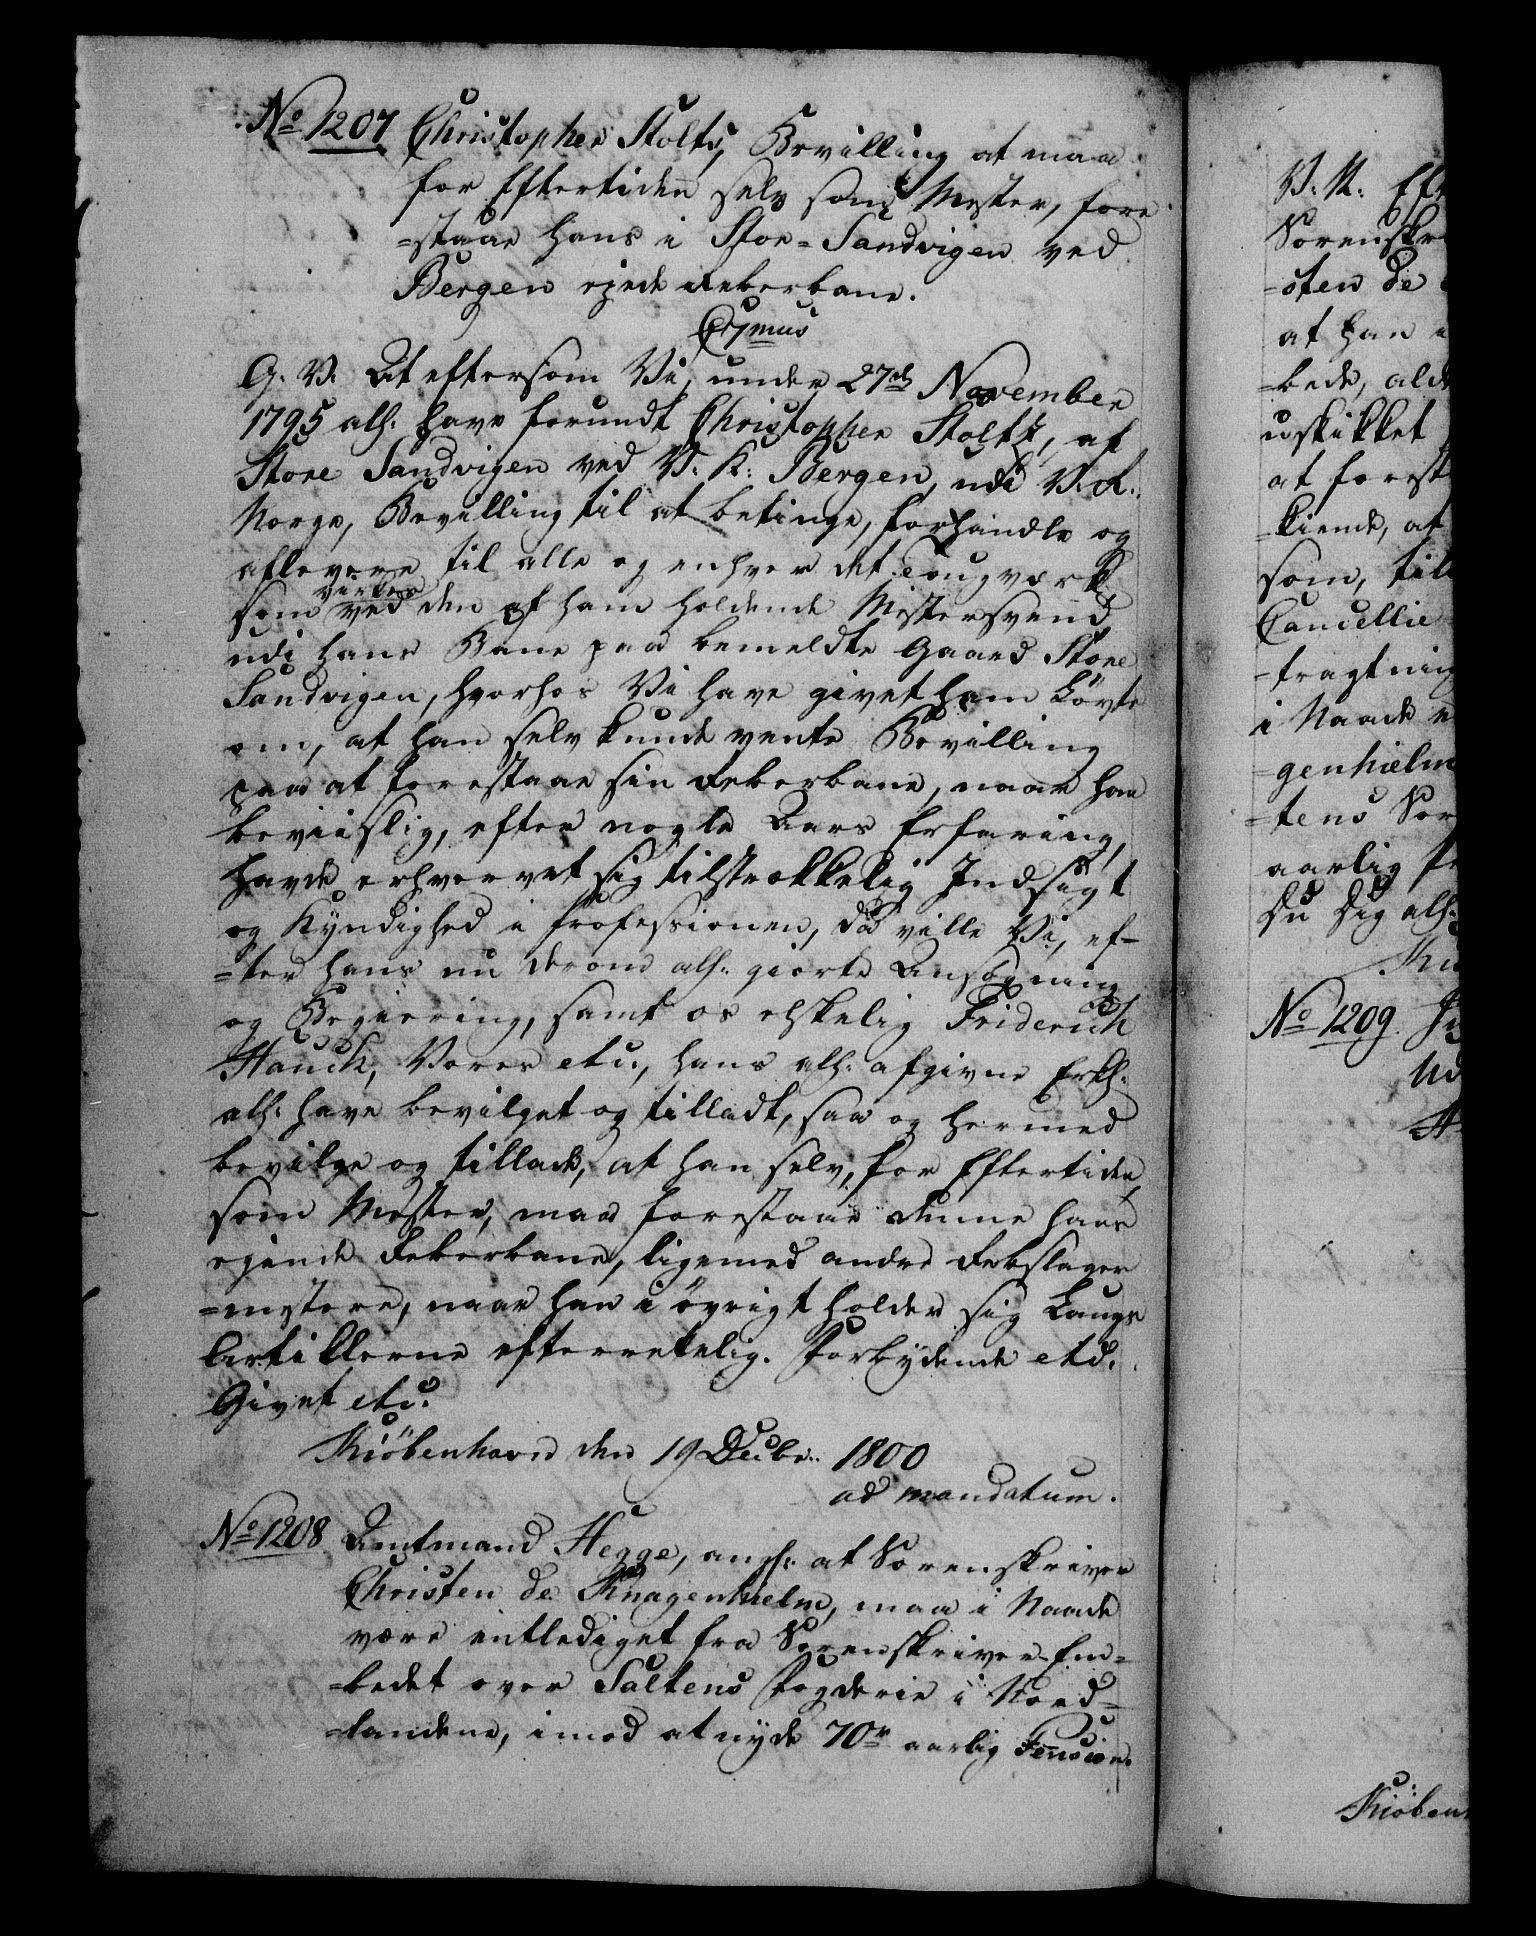 No 1207 Christopher Stoltz, Bevilling at maa
for Eftertiden selv som Mester, fore
=staae hans i Store=Sandvigen ved
Bergen ejede Reberbane.
C 7mus
G. V. At eftersom Vi, under 27de November
1795 alh: have forundt Christopher Stoltz, af
Store Sandvigen ved V. K: Bergen, udi V. R:
Norge, Bevilling til at betinge, forhandle og
aflevere til alle og enhver det Tougværk
som virkes ved den af ham holdende Mestersvend
udi hans Bane paa bemeldte Gaard Store
Sandvigen, hvorhos Vi have givet ham Löfte
om, at han selv kunde vente Bevilling
paa at forestaae sin Reberbane, naar han
beviislig, efter nogle Aars Erfaring,
havde erhvervet sig tilstrækkelig Indsigt
og Kyndighed i Professionen, da ville Vi, ef-
=ter hans nu derom alh: giorte Ansøgning
og Begiering, samt os elskelig Friderich
Hauch, Vores etc:, hans alh: afgivne Erkl:
alh: have bevilget og tilladt, saa og hermed
bevilge og tillade, at han selv, for Eftertiden,
som Mester, maa forestaae denne hans
ejende Reberbane, ligemed andre Rebslager
=mestere, naar han i övrigt holder sig Laugs
Artiklerne efterrettelig. Forbydende etc:
Givet etc:
Kiöbenhavn den 19 Decbr: 1800
ad mandatum.
No 1208 Amtmand Hegge, anh: at Sorenskriver
Christen de Knagenhielm, maa i Naade
være entlediget fra Sorenskriver-Em=
=bedet over Saltens Fogderie i Nord=
=landene, imod at nyde 70r aarlig Pension.
V. K. Eft
Sorenskr
=sten de
at han
=bede, alde
uskikket
at forest
=kiende, at
som, til
Cancellie
=tragtning
i Naade
genhielm
=tens Sor
aarlig Pe
Du dig alh:
No 1209.
Ud
Kiöben